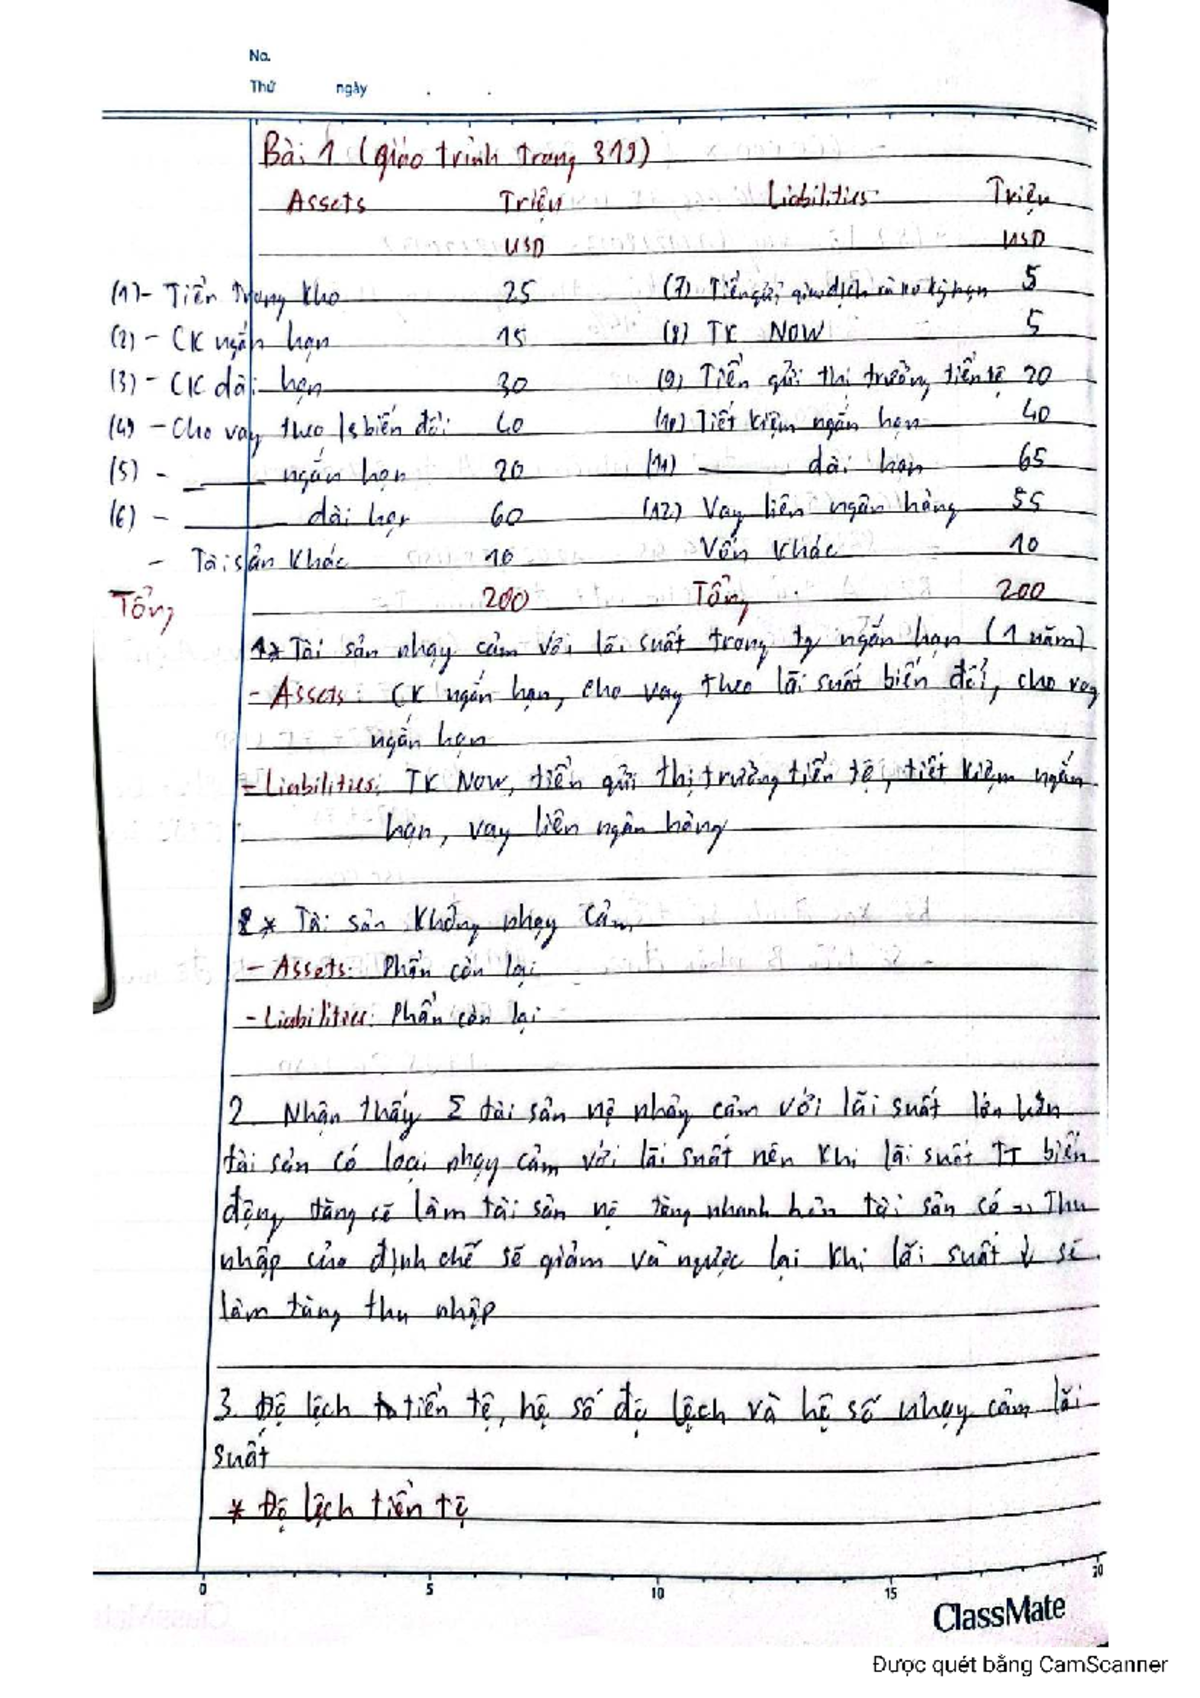 No.
Thứ ngày . .
Bài 1 (giáo trình trang 319)
Assets Triệu Liabilities Triệu
USD USD
(1) - Tiền trong kho 25 (7) Tiền gửi giao dịch và ko kỳ hạn 5
(2) - CK ngắn hạn 15 (8) TK NOW 5
(3) - CK dài hạn 30 (9) Tiền gửi thị trường tiền tệ 20
(4) - Cho vay theo ls biến đổi 40 (10) Tiết kiệm ngắn hạn 40
(5) - ngắn hạn 20 (11) dài hạn 65
(6) - dài hạn 60 (12) Vay liên ngân hàng 55
- Tài sản khác 10 Vốn khác 10
Tổng 200 Tổng 200
1* Tài sản nhạy cảm với lãi suất trong tg ngắn hạn (1 năm)
- Assets: CK ngắn hạn, cho vay theo lãi suất biến đổi, cho vay
ngắn hạn
- Liabilities: TK Now, tiền gửi thị trường tiền tệ, tiết kiệm ngắn
hạn, vay liên ngân hàng
2* Tài sản không nhạy cảm
- Assets: Phần còn lại
- Liabilities: Phần còn lại
2. Nhận thấy Σ tài sản nợ nhảy cảm với lãi suất lớn hơn
tài sản có loại nhạy cảm với lãi suất nên khi lãi suất TT biến
động tăng sẽ làm tài sản nợ tăng nhanh hơn tài sản có => Thu
nhập của định chế sẽ giảm và ngược lại khi lãi suất ↓ sẽ
làm tăng thu nhập
3. Độ lệch tiền tệ, hệ số độ lệch và hệ số nhạy cảm lãi
suất
* Độ lệch tiền tệ
0 5 10 15 20
ClassMate
Được quét bằng CamScanner